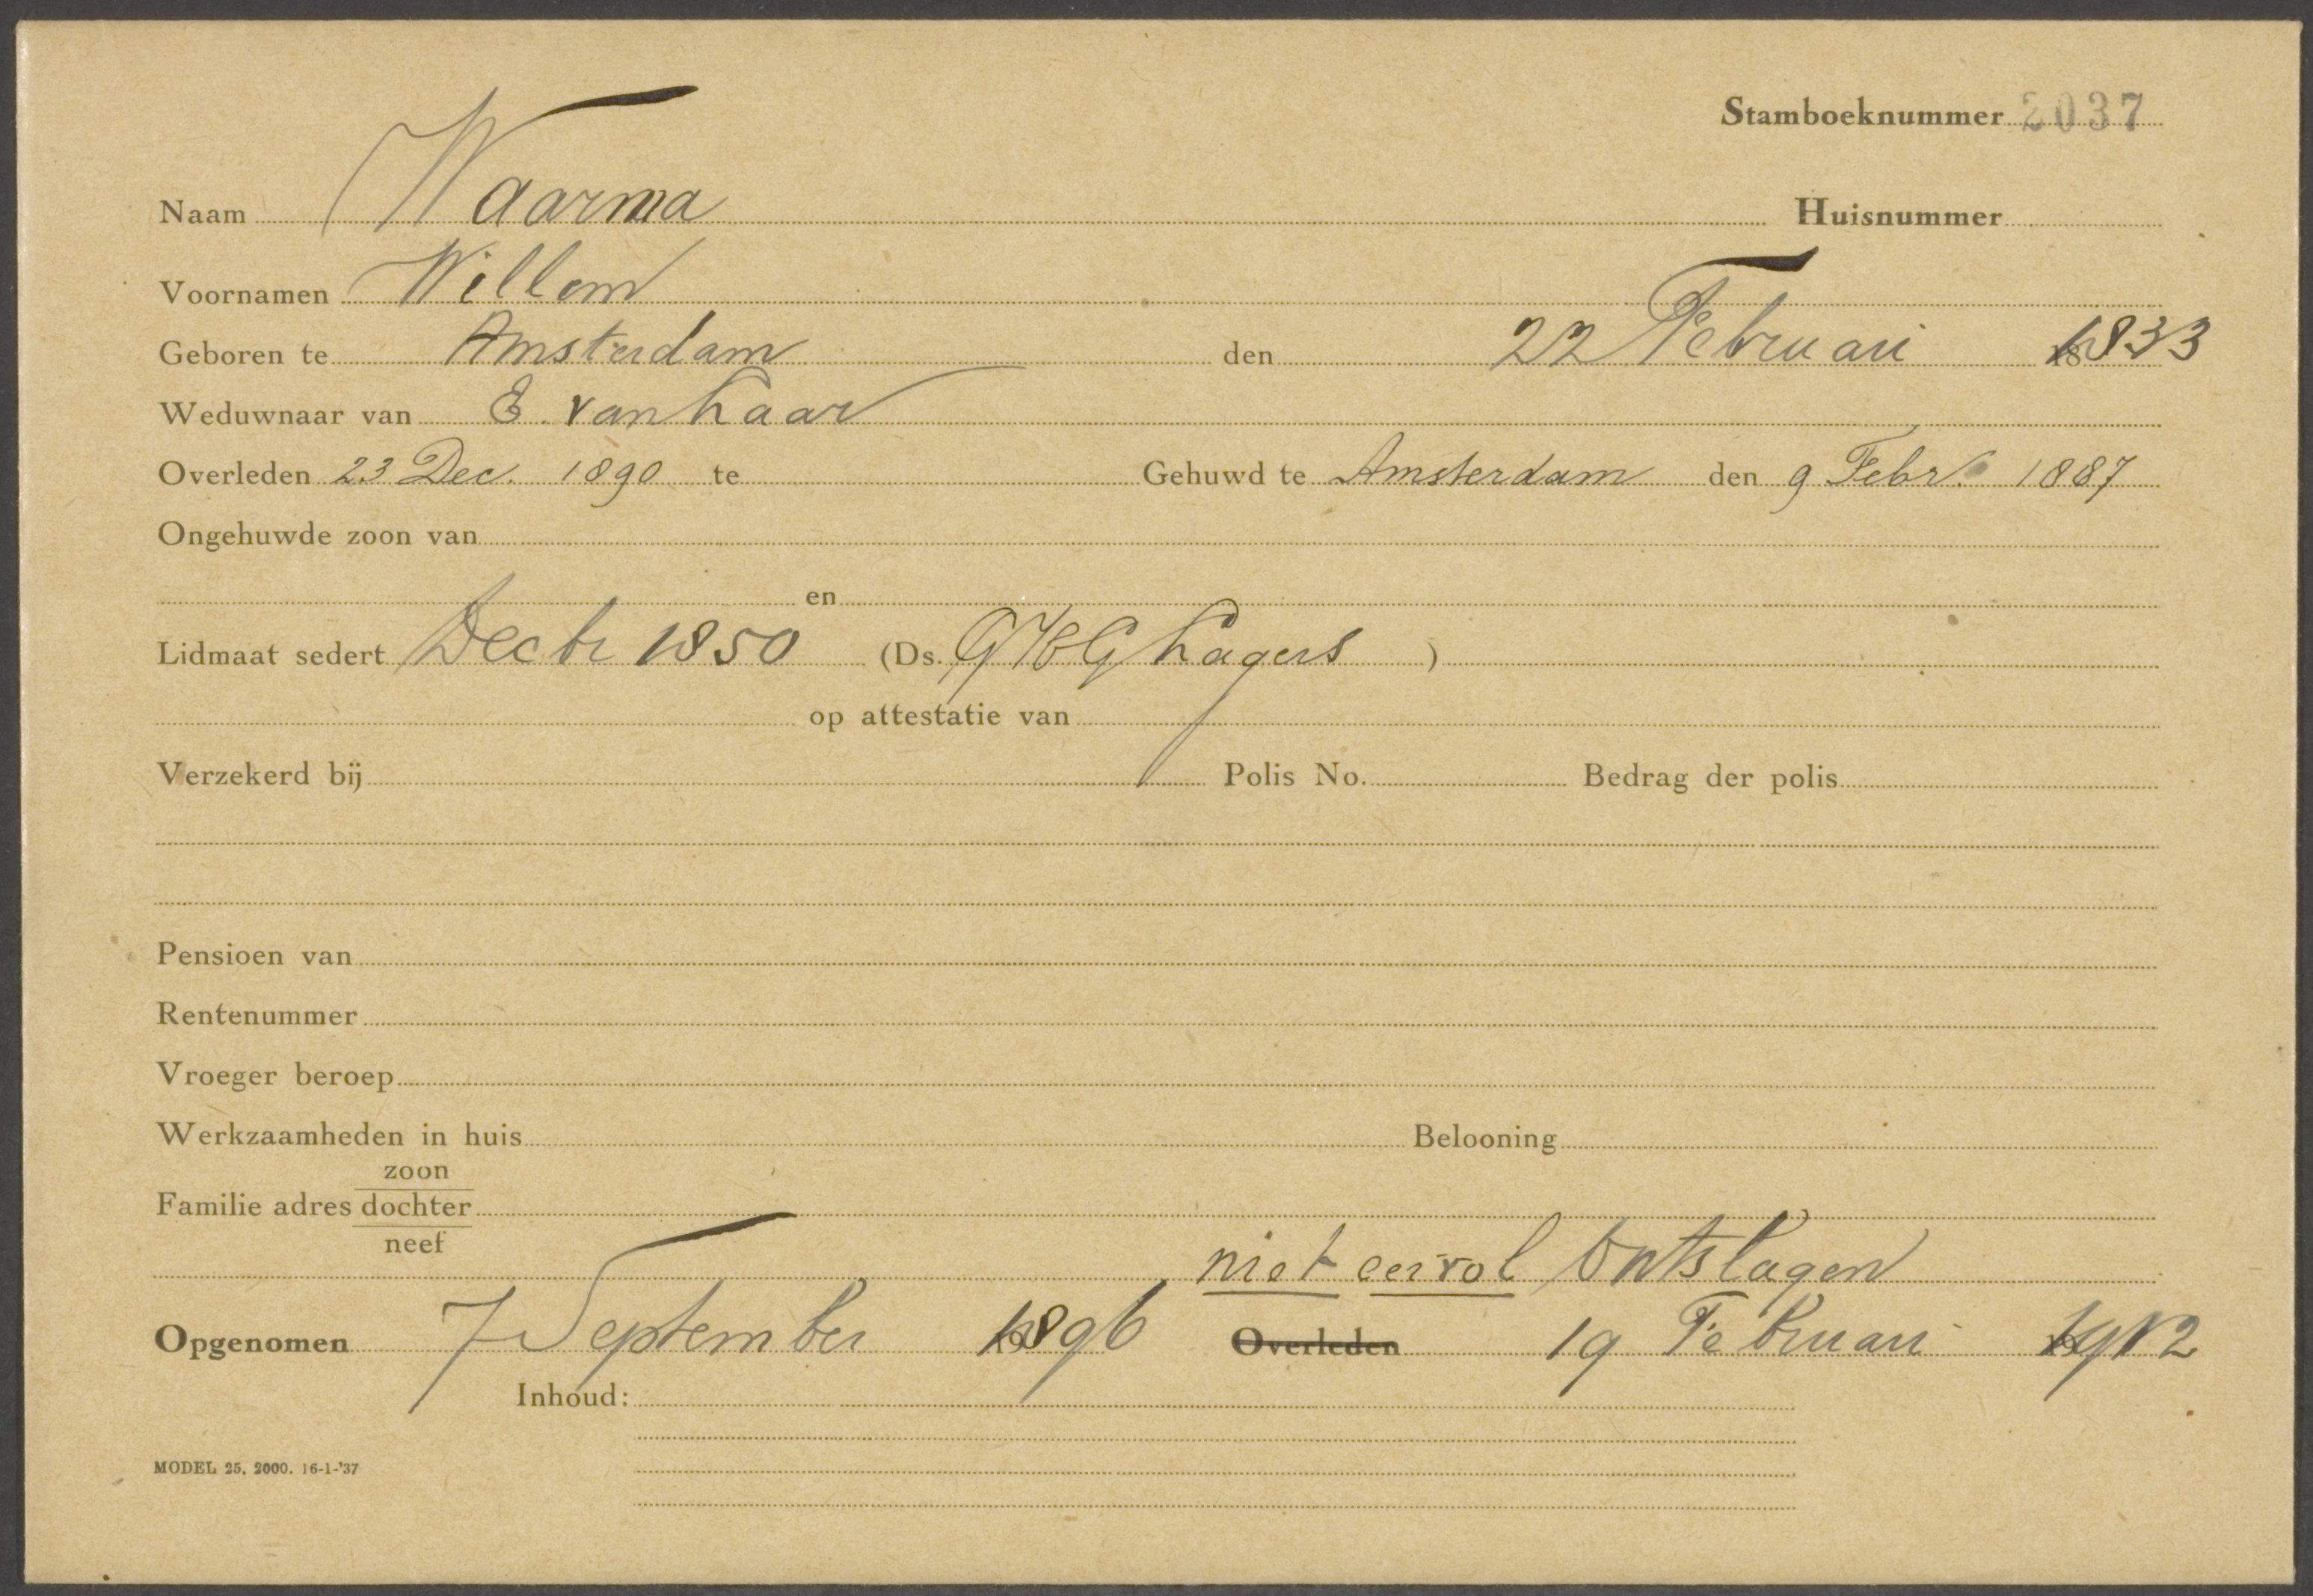 Stamboeknummer 2037
Naam Waarma Huisnummer
Voornamen Willem
Geboren te Amsterdam den 22 Februari 1833
Weduwnaar van E. van Laar
Overleden 23 Dec. 1890 te Gehuwd te Amsterdam den 9 Febr. 1887
Ongehuwde zoon van
en
Lidmaat sedert Decbr 1850 (Ds. G H G Lagers )
op attestatie van
Verzekerd bij Polis No. Bedrag der polis
Pensioen van
Rentenummer
Vroeger beroep
Werkzaamheden in huis Belooning
zoon
Familie adres dochter
neef
niet eervol Ontslagen
Opgenomen 7 September 1896 Overleden 19 Februari 1912
Inhoud:
MODEL 25. 2000. 16-1-'37